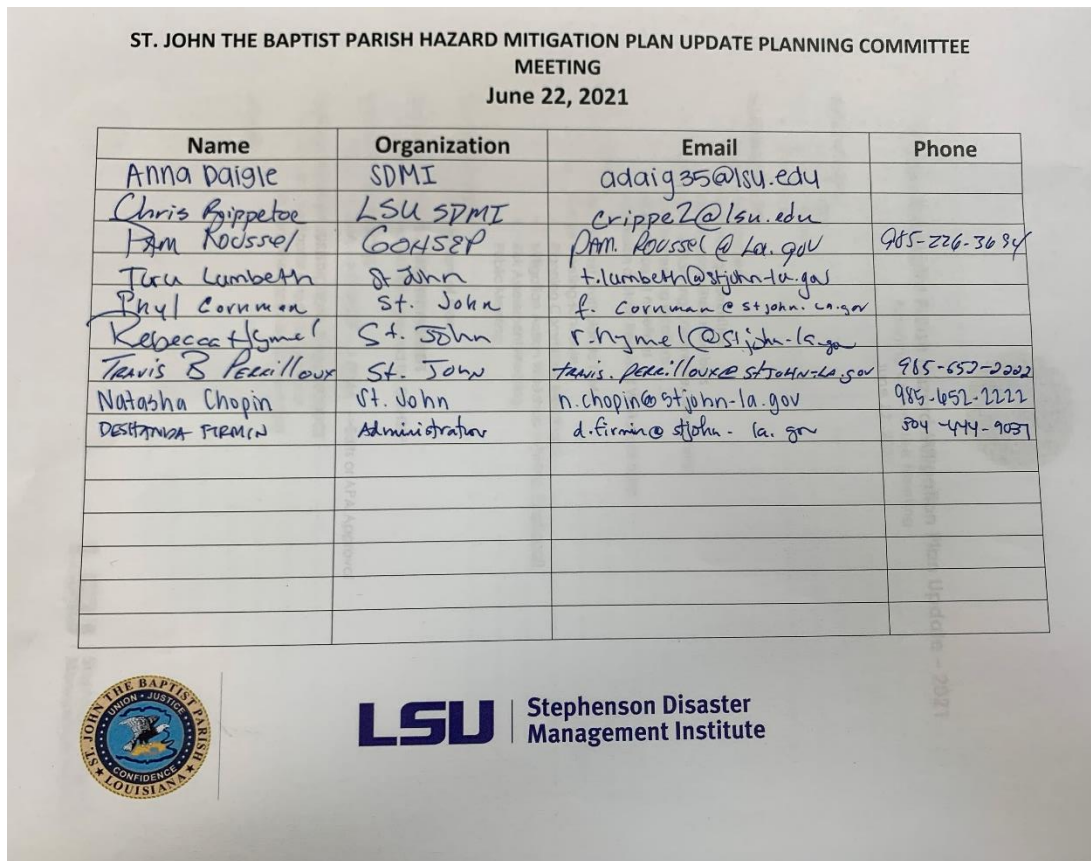 ST. JOHN THE BAPTIST PARISH HAZARD MITIGATION PLAN UPDATE PLANNING COMMITTEE
MEETING
June 22, 2021
Name Organization Email Phone
Anna Daigle SDMI adaig35@lsu.edu
Chris Rippetoe LSU SDMI crippe2@lsu.edu
Pam Roussel GOHSEP PAM. Roussel @ La.gov 985-226-3694
Tara Lambeth St John t.lambeth@stjohn-la.gov
Phyl Cornman St. John f. cornman @ stjohn. la.gov
Rebecca Hymel St. John r.hymel@stjohn-la.gov
Travis B Perilloux St. John travis. perilloux@ stJOHN-LA.gov 985-652-2222
Natasha Chopin St. John n.chopin@stjohn-la.gov 985-652-2222
DESHANDA FIRMIN Administration d.firmin@ stjohn- la. gov 504-444-9037
ST. JOHN THE BAPTIST PARISH
UNION · JUSTICE
CONFIDENCE
LOUISIANA
LSU Stephenson Disaster
Management Institute